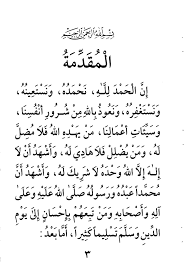 بِسْمِ اللَّهِ الرَّحْمَنِ الرَّحِيمِ
الْمُقَدِّمَةُ
إِنَّ الْحَمْدَ لِلَّهِ، نَحْمَدُهُ، وَنَسْتَعِينُهُ،
وَنَسْتَغْفِرُهُ، وَنَعُوذُ بِاللهِ مِنْ شُرُورِ أَنْفُسِنَا،
وَسَيِّئَاتِ أَعْمَالِنَا، مَنْ يَهْدِهِ اللهُ فَلَا مُضِلَّ
لَهُ، وَمَنْ يُضْلِلْ فَلَا هَادِيَ لَهُ، وَأَشْهَدُ أَنْ لَا
إِلَهَ إِلَّا اللهُ وَحْدَهُ لَا شَرِيكَ لَهُ، وَأَشْهَدُ أَنَّ
مُحَمَّداً عَبْدُهُ وَرَسُولُهُ صَلَّى اللهُ عَلَيْهِ وَعَلَى
آلِهِ وَأَصْحَابِهِ وَمَنْ تَبِعَهُمْ بِإِحْسَانٍ إِلَى يَوْمِ
الدِّينِ وَسَلَّمَ تَسْلِيماً كَثِيراً، أَمَّا بَعْدُ:
٣